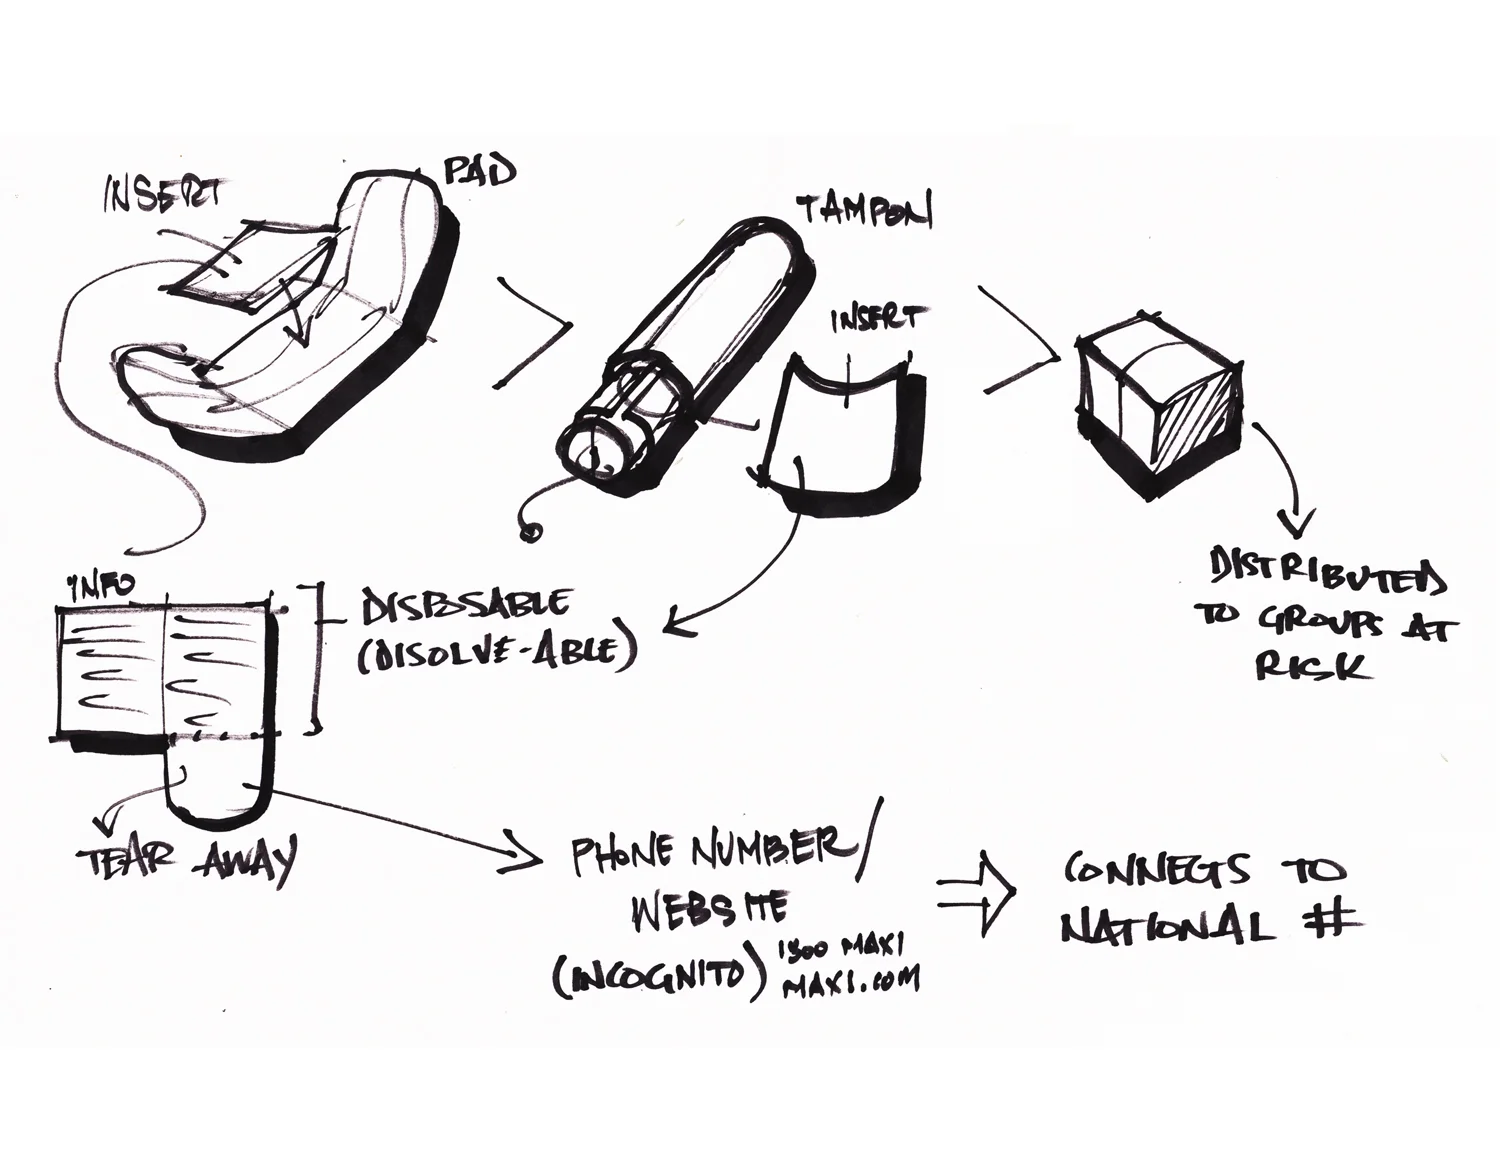 INSERT
PAD
TAMPON
INSERT
DISTRIBUTED
TO GROUPS AT
RISK
INFO
DISPOSABLE
(DISOLVE-ABLE)
TEAR AWAY
PHONE NUMBER/
WEBSITE
(INCOGNITO)
1800 MAXI
MAXI.COM
CONNECTS TO
NATIONAL #